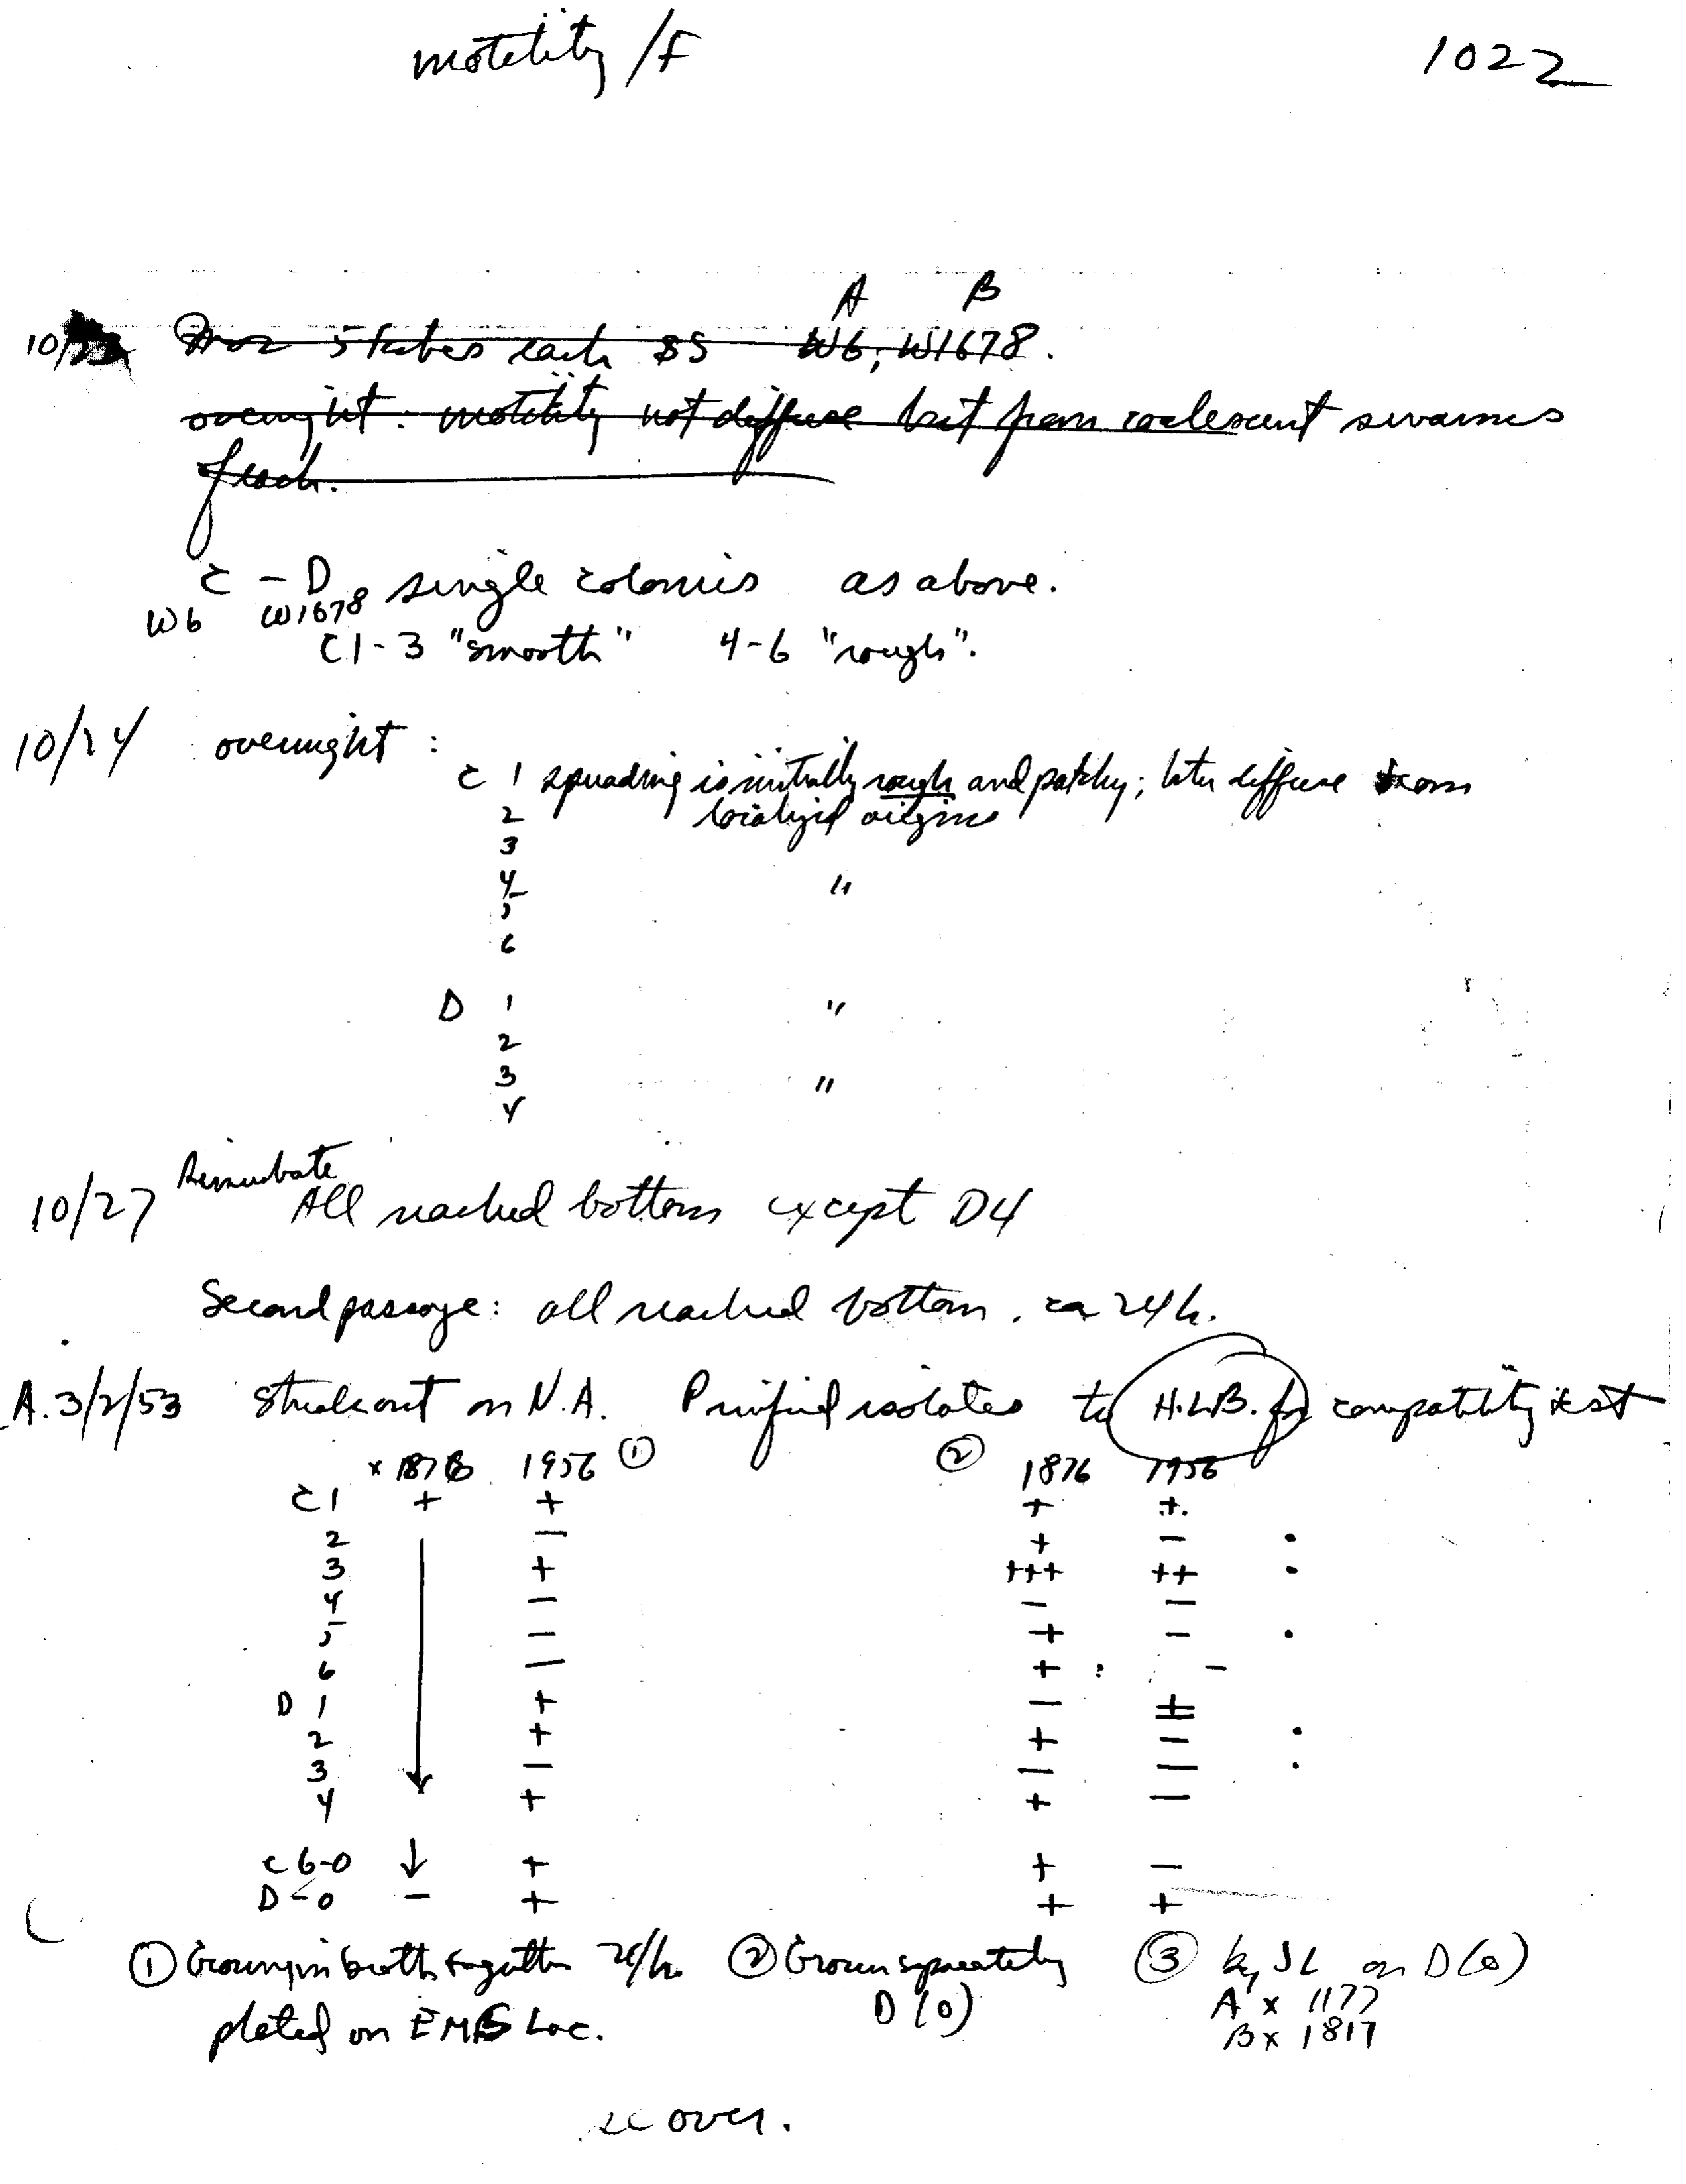 motility /F 1022
A B
10/22 5 tubes each W6; W1678.
overnight: motility not diffuse but from coalescent swarms
of each.
C – D single colonies as above.
W6 W1678
C1-3 "smooth" 4-6 "rough".
10/24 overnight :
C 1 spreading is initially rough and patchy; later diffuse from
2 localized origins
3
4 "
5
6
D 1 "
2
3 "
4
Reincubate
10/27 All reached bottom except D4
Second passage: all reached bottom. ca 24h.
A. 3/2/53 Streakout on N.A. Purified isolates to H.L.B. for compatibility test
x 1876 1956 ① ② 1876 1956
C1 + + + +.
2 — + — •
3 + +++ ++ •
4 — — —
5 — + — •
6 — + : —
D 1 + — ±
2 + + — •
3 — — — •
4 + + —
C 6-0 ↓ + + —
D -0 — + + +
① Grown in broth together 24h. ② Grown separately ③ by JL on D(0)
plated on EMB Lac. D(0) A x 1177
B x 1817
over.